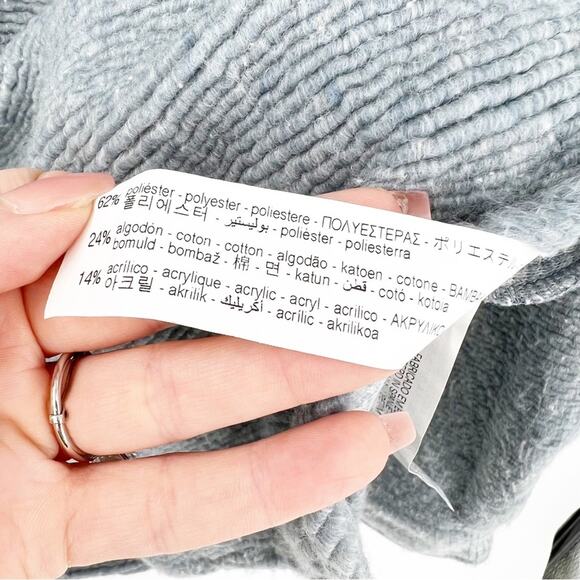 62% poliéster - polyester - poliestere - ΠΟΛΥΕΣΤΕΡΑΣ - ポリエステル
폴리에스터 - بوليستير - polièster - poliesterra
24% algodón - coton - cotton - algodão - katoen - cotone -
bomuld - bombaž - 棉 - 면 - katun - قطن - cotó - kotoia
14% acrílico - acrylique - acrylic - acryl - acrilico -
아크릴 - akrilik - أكريليك - acrílic - akrilikoa
FABRICADO EN